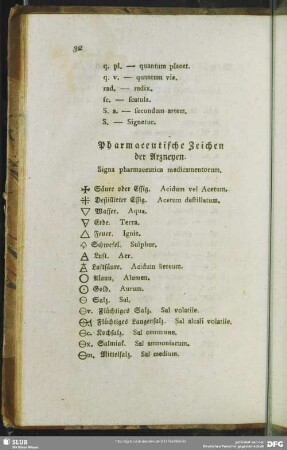 32
q. pl. — quantum placet.
q. v. — quantum vis.
rad. — radix.
sc. — scatula.
S. a. — secundum artem.
S. — Signatur.
Pharmaceutische Zeichen
der Arzneyen.
Signa pharmaceutica medicamentorum.
Säure oder Essig. Acidum vel Acetum.
Destillirter Essig. Acetum destillatum.
Wasser. Aqua.
Erde. Terra.
Feuer. Ignis.
Schwefel. Sulphur.
Luft. Aer.
Luftsäure. Acidum aereum.
Alaun, Alumen.
Gold. Aurum.
Salz. Sal.
v. Flüchtiges Salz. Sal volatile.
Flüchtiges Laugensalz. Sal alcali volatile.
c. Kochsalz. Sal commune.
x. Salmiak. Sal ammoniacum.
m. Mittelsalz. Sal medium.
SLUB
Wir führen Wissen.
DFG